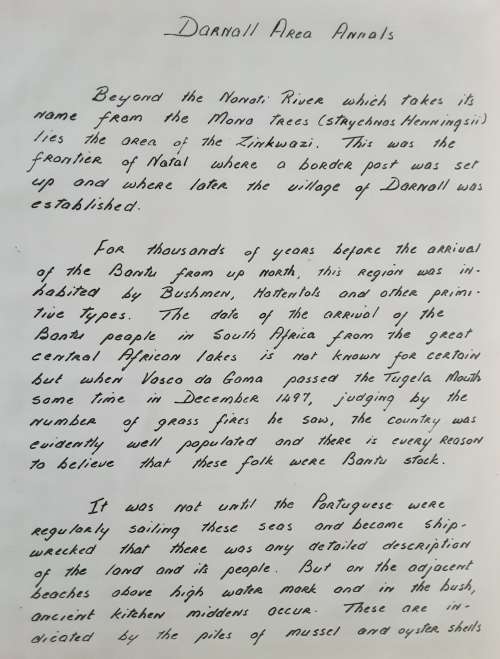 Darnall Area Annals
Beyond the Nonoti River which takes its
name from the Mono trees (strychnos Henningsii)
lies the area of the Zinkwazi. This was the
frontier of Natal where a border post was set
up and where later the village of Darnall was
established.
For thousands of years before the arrival
of the Bantu from up north, this region was in-
habited by Bushmen, Hottentots and other primi-
tive types. The date of the arrival of the
Bantu people in South Africa from the great
central African lakes is not known for certain
but when Vasco da Gama passed the Tugela Mouth
some time in December 1497, judging by the
number of grass fires he saw, the country was
evidently well populated and there is every reason
to believe that these folk were Bantu stock.
It was not until the Portuguese were
regularly sailing these seas and became ship-
wrecked that there was any detailed description
of the land and its people. But on the adjacent
beaches above high water mark and in the bush,
ancient kitchen middens occur. These are in-
dicated by the piles of mussel and oyster shells